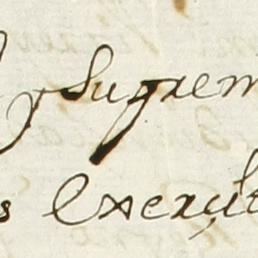 y Suprem
s Execut